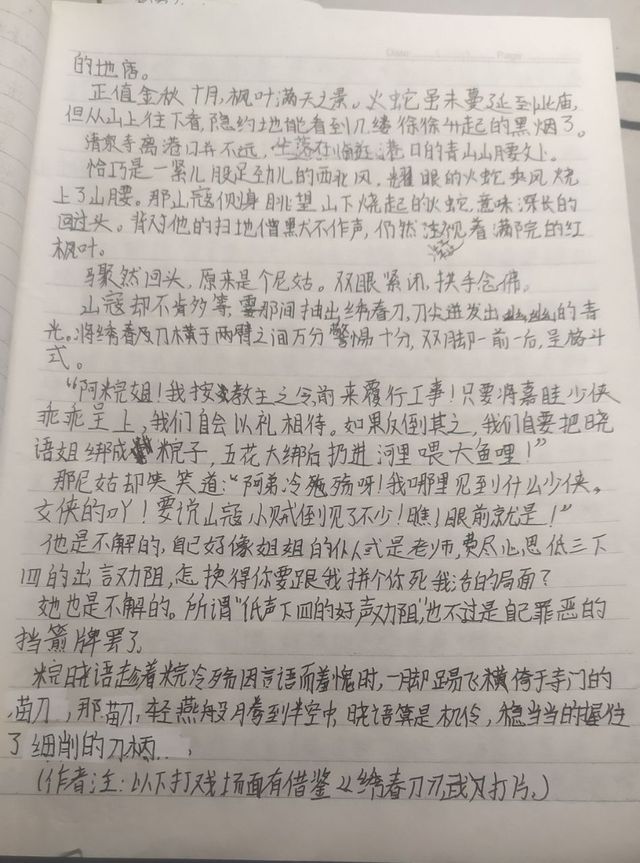 Date Page
的地啎。
正值金秋十月,枫叶满天之景。火蛇虽未蔓延至此庙,
但从山上往下看,隐约地能看到几缕徐徐升起的黑烟了。
清泉寺离港口并不远,坐落在临近港口的青山山腰处。
恰巧是一紧儿股足劲儿的西北风,耀眼的火蛇乘风烧
上了山腰。那山寇侧身眺望山下烧起的火蛇,意味深长的
回过头。背对他的扫地僧默不作声,仍然注视着满院的红
枫叶。
骤然回头,原来是个尼姑。双眼紧闭,拱手念佛。
山寇却不肯多等,霎那间抽出绣春刀,刀尖迸发出幽幽的青
光。将绣春刀横于两臂之间万分警惕十分,双脚一前一后,呈格斗
式。
“阿粽姐!我按教主之令前来履行工事!只要将嘉眭少侠
乖乖呈上,我们自会以礼相待。如果反倒其之,我们自要把晓
语姐绑成粽子,五花大绑后扔进河里喂大鱼哩!”
那尼姑却哄笑道:“阿弟冷殇呀!我哪里见到什么少侠、
女侠的吖!要说山寇小贼倒见了不少!瞧!眼前就是!”
他是不解的,自己好像姐姐的仪式是老师,费尽心思低三下
四的出言劝阻,怎换得你要跟我拼个你死我活的局面?
她也是不解的。所谓“低声下四的好声劝阻”,也不过是自己罪恶的
挡箭牌罢了。
粽晓语趁着粽冷殇因言语而羞愧时,一脚踢飞横倚于寺门的
苗刀,那苗刀轻燕般腾到半空中,晓语算是机伶,稳当当的握住
了细削的刀柄...,
(作者注:以下打戏场面有借鉴《绣春刀》武打片。)